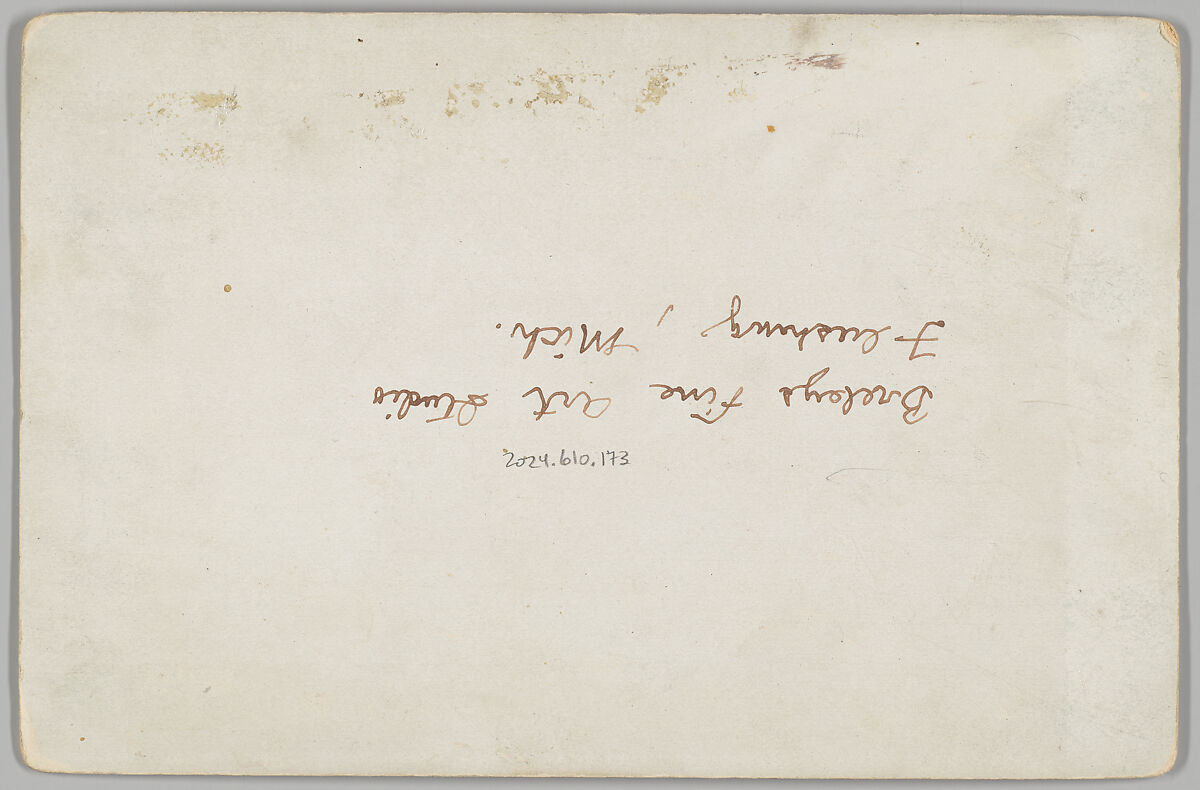 2024.610.173
Breleys Fine Art Studio
Flushing, Mich.